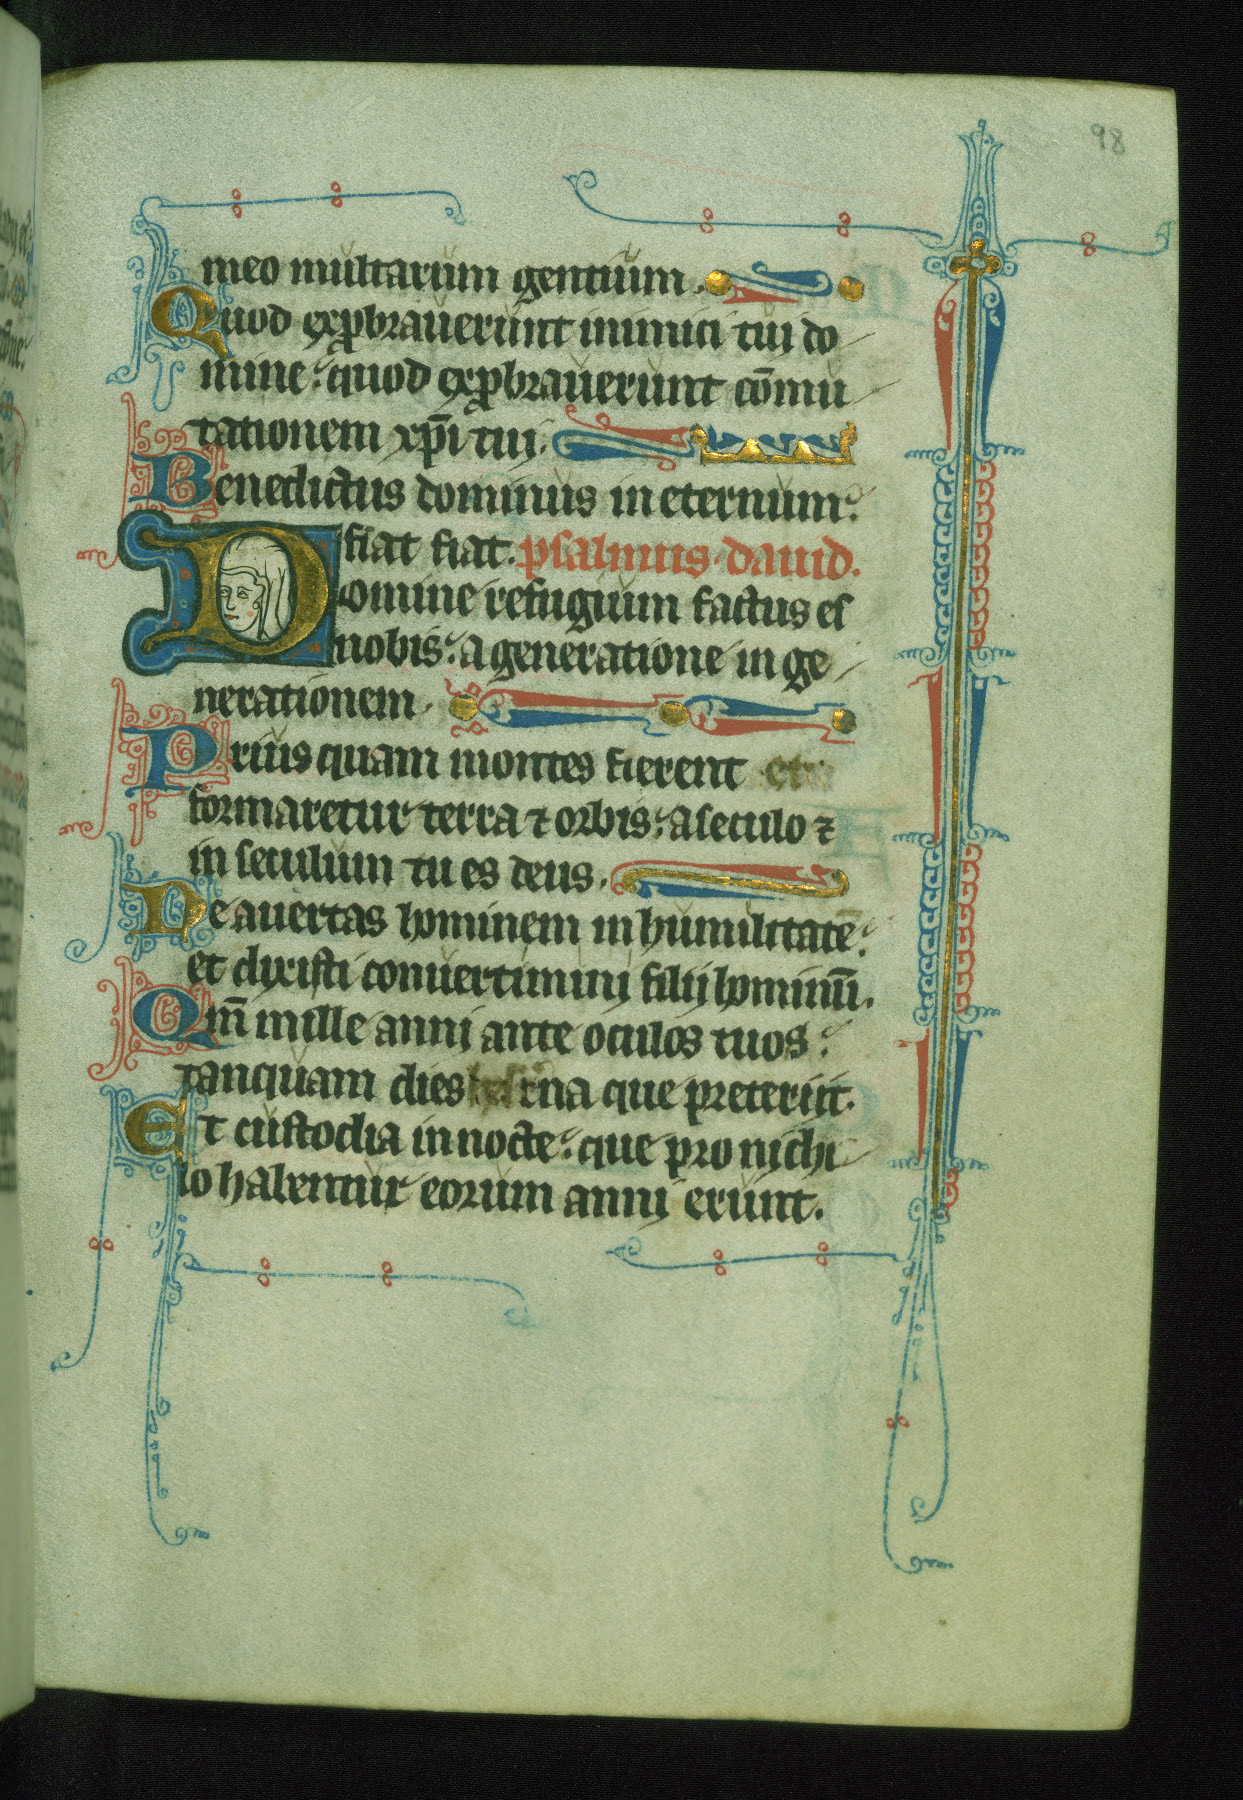 98
meo multarum gentium.
Quod exprobrauerunt inimici tui do
mine: quod exprobrauerunt cōmu
tationem xp̄i tui.
Benedictus dominus in eternum:
fiat fiat. psalmus dauid.
Domine refugium factus es
nobis: a generatione in ge
nerationem.
Prius quam montes fierent
formaretur terra ⁊ orbis: a seculo ⁊
in seculum tu es deus.
Ne auertas hominem in humilitatē:
et dixisti conuertimini filij hominū.
Qm̄ mille anni ante oculos tuos:
tanquam dies rna que preterijt.
Et custodia in nocte: que pro nichi
lo habentur eorum anni erunt.